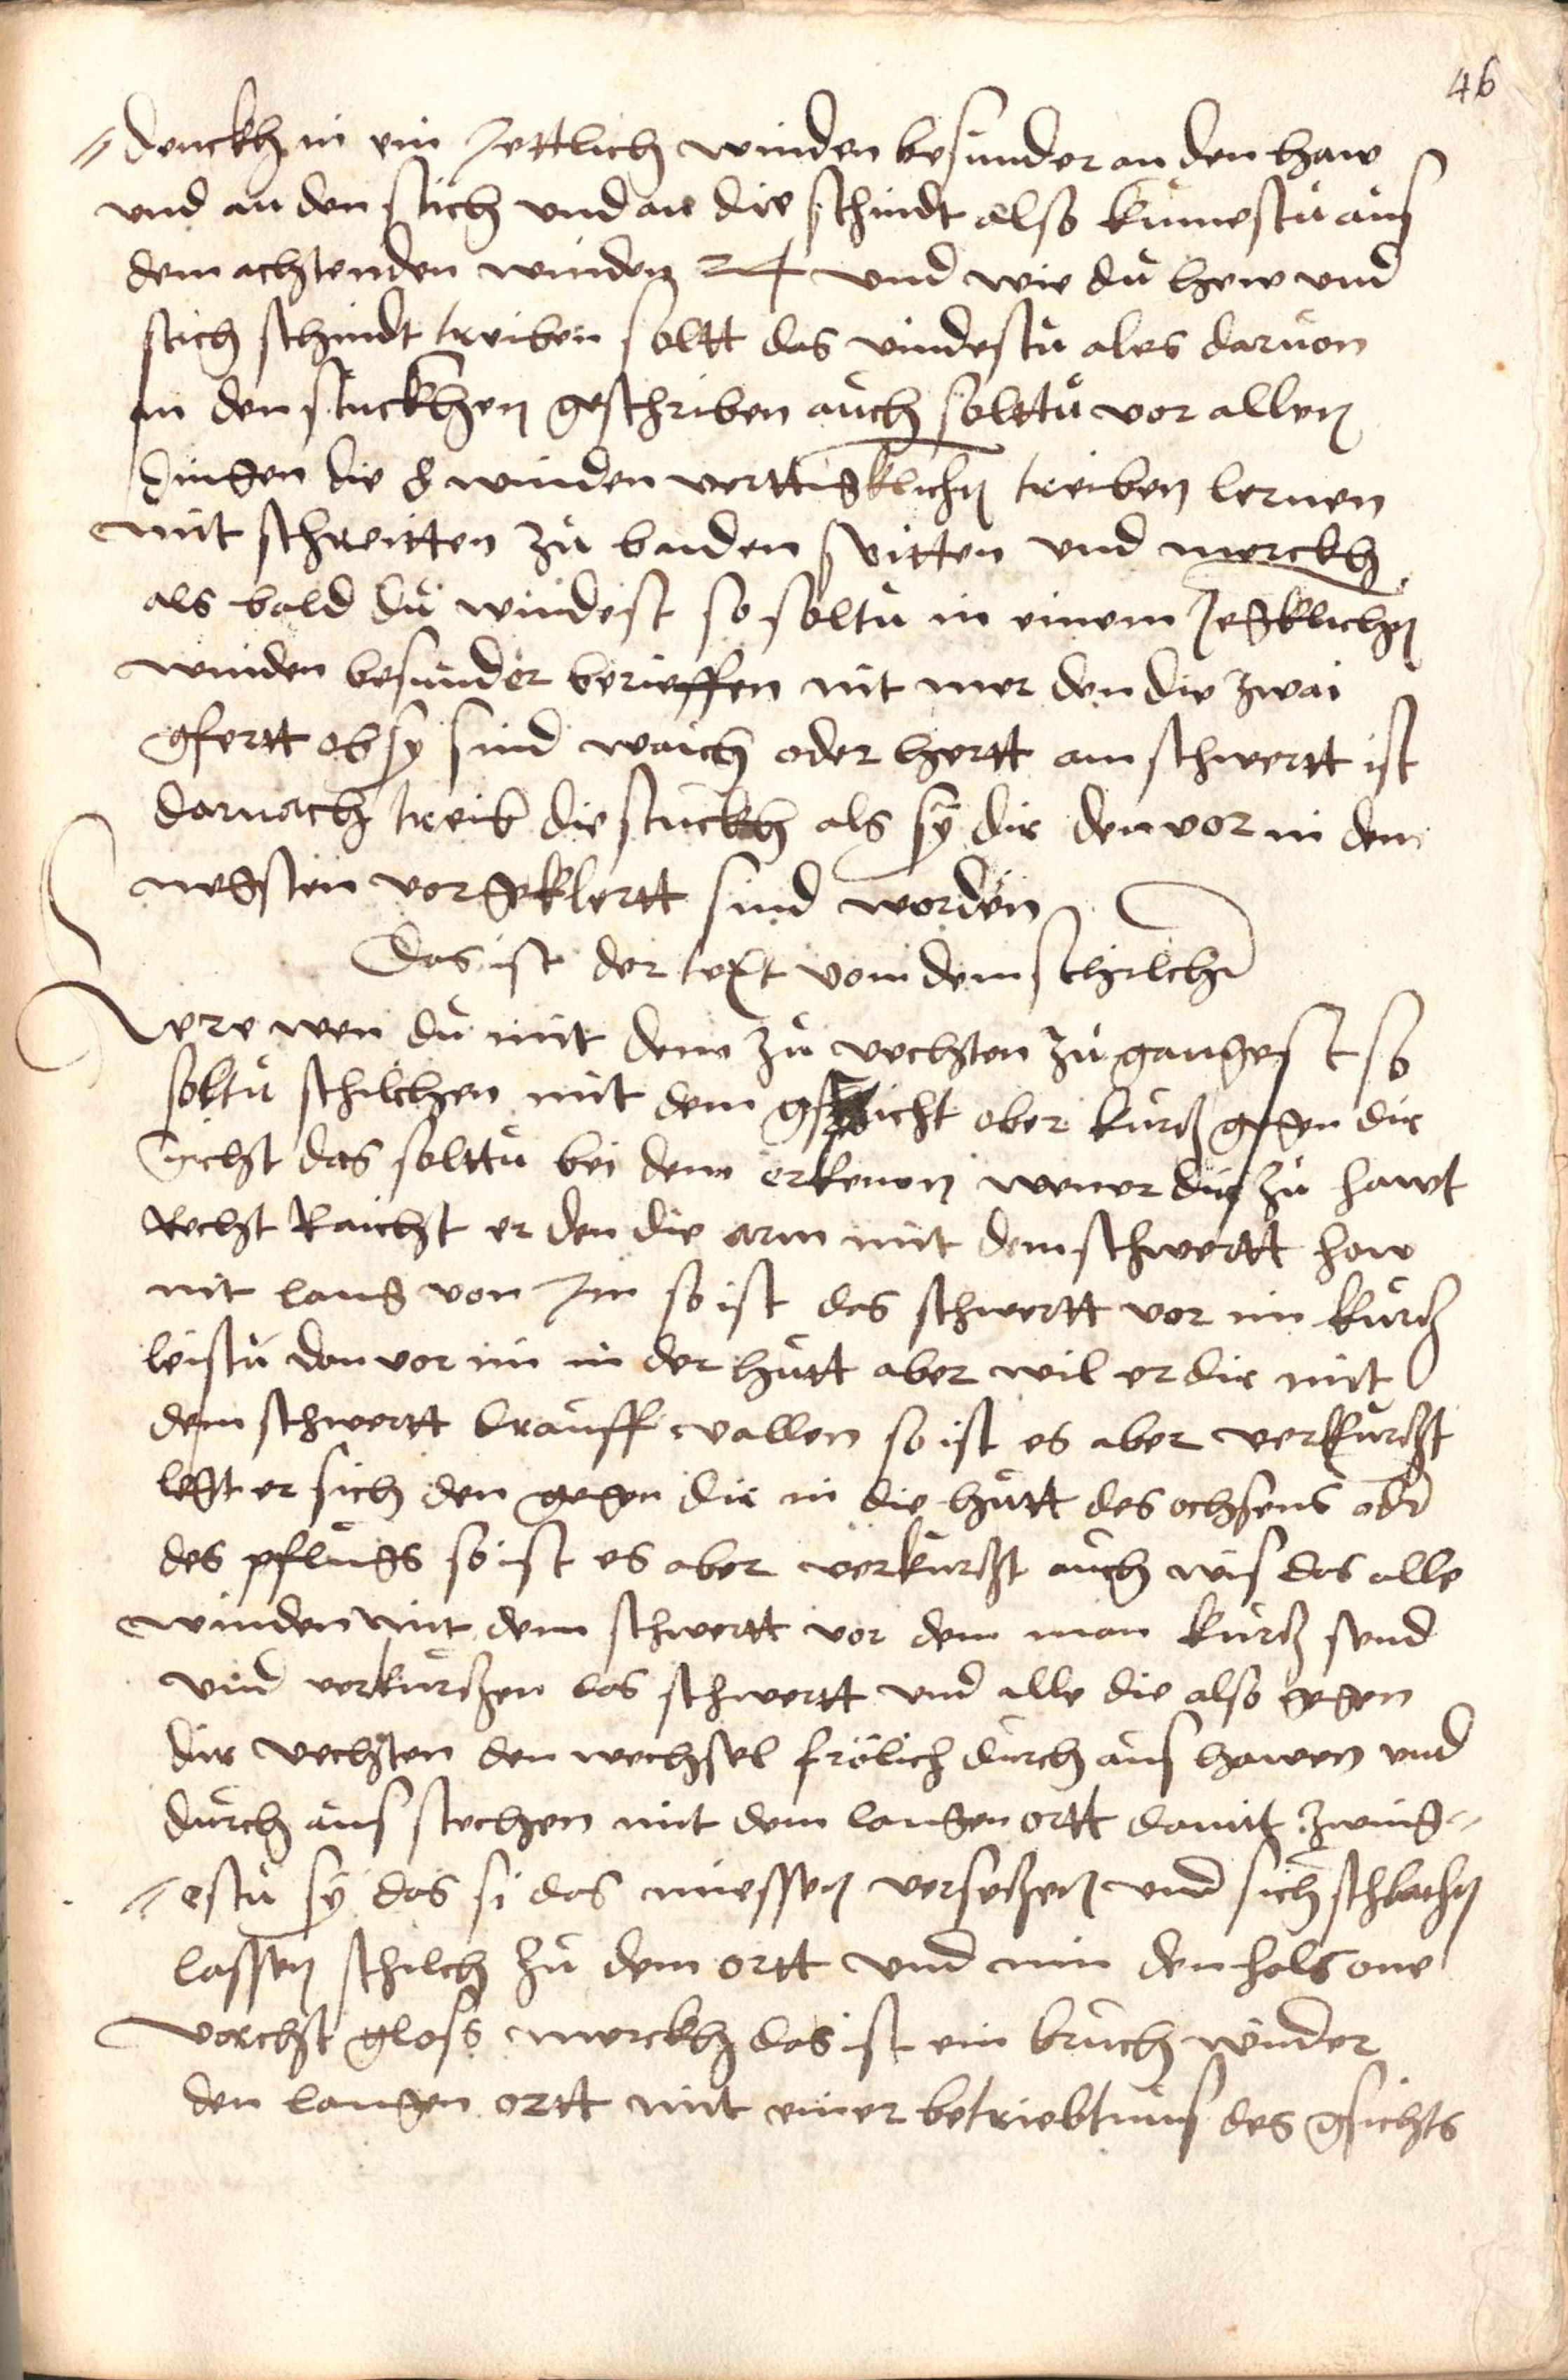 46
denckh in ein Jettlich winden besunder an den haw
vnd an den stich vnd an die schindt also kumestu aus
dem achtenden winden 24 vnd wie du hew vnd
stich schindt treiben soltt das vindestu ales daruon
in den stuckhen geschriben auch solttu vor allen
dingen die 8 winden verttigklichen treiben lernen
mit schreitten zu baiden seitten vnd merckh
als bald du windest so soltu in einem Jegklichen
winden besunder brieffen nit mer den die zwai
gfertt ob sy sind waich oder hertt am schwertt ist
darnach treib die stuckh als sy dir den vor in dem
negsten vor geklertt sind worden
Das ist der text vom dem schilchen
Lere wen du mit dem zu vechten zu gangest so
soltu schilchen mit dem gsicht ober kurtz gegen dir
vicht das solttu bei dem erkenen wen er dir zu hawt
Recht Raicht er den die arm mit dem schwertt haw
nit lang von Im so ist das schwertt vor im kurtz
leistu dan vor im in der hutt aber wil er dir mit
dem schwertt drauff vallen so ist es aber verkurtzt
legt er sich den gegen dir in die hutt des ochsens oder
des pflugs so ist es aber verkurtzt auch wis das alle
winden mit dem schwertt vor dem man kurtz send
vnd verkurtzen das schwertt vnd alle die also gegen
dir vechten den wechsel frölich durch aus hawen vnd
durch aus stechen mit dem langen ortt damit zwing=
=estu sy das si das miessen versetzen vnd sich schlachen
lassen schilch zu dem ortt vnd nim den hals one
vorcht gloss merckh das ist ein bruch winder
den langen ortt mit einer betriebtnus des gsichts